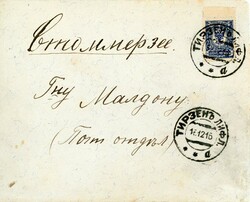 Стоммерзее.
Гну Малдону.
(Почт отдѣл
ТИРЗЕНЪ ЛИФЛ.
ТИРЗЕНЪ ЛИФЛ.